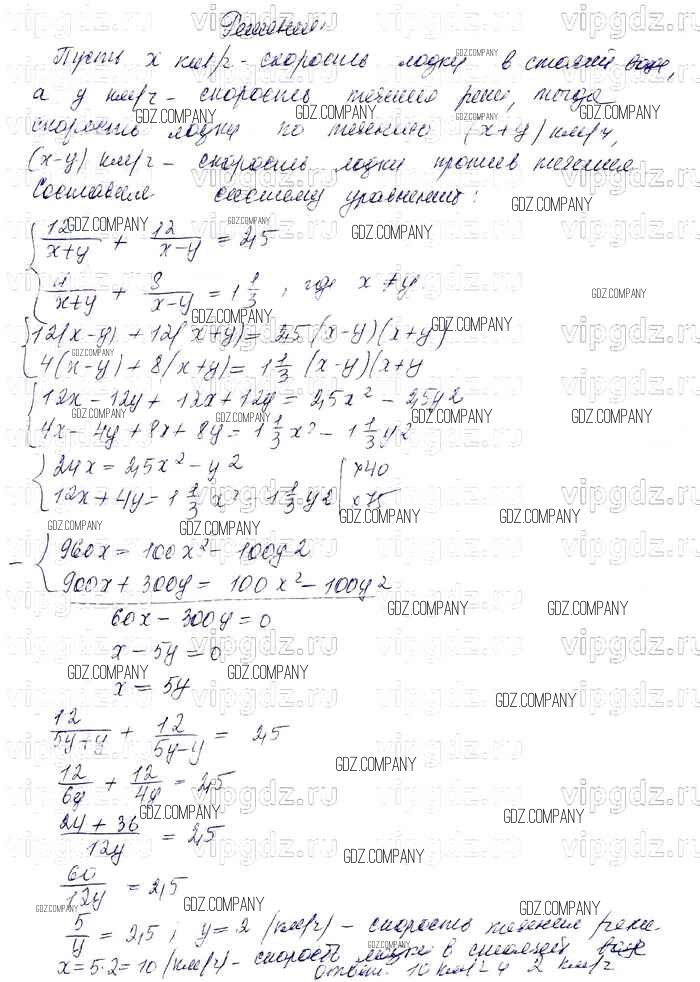 Решение.
Пусть x км/ч - скорость лодки в стоячей воде,
а y км/ч - скорость течения реки, тогда
скорость лодки по течению (x+y) км/ч,
(x-y) км/ч - скорость лодки против течения
Составим систему уравнений:
12/(x+y) + 12/(x-y) = 2,5
4/(x+y) + 8/(x-y) = 1 1/3, где x ≠ y.
12(x-y) + 12(x+y) = 2,5(x-y)(x+y)
4(x-y) + 8(x+y) = 1 1/3 (x-y)(x+y
12x - 12y + 12x + 12y = 2,5x² - 2,5y2
4x - 4y + 8x + 8y = 1 1/3 x² - 1 1/3 y2
24x = 2,5x² - y2 | x40
12x + 4y = 1 1/3 x² - 1 1/3 y2 | x75
- 960x = 100x² - 100y2
900x + 300y = 100x² - 100y2
60x - 300y = 0
x - 5y = 0
x = 5y
12/(5y+y) + 12/(5y-y) = 2,5
12/6y + 12/4y = 2,5
(24 + 36)/12y = 2,5
60/12y = 2,5
5/y = 2,5; y = 2 (км/ч) - скорость течения реки.
x = 5·2 = 10 (км/ч) - скорость лодки в стоячей воде
Ответ: 10 км/ч и 2 км/ч
vipgdz.ru
GDZ.COMPANY